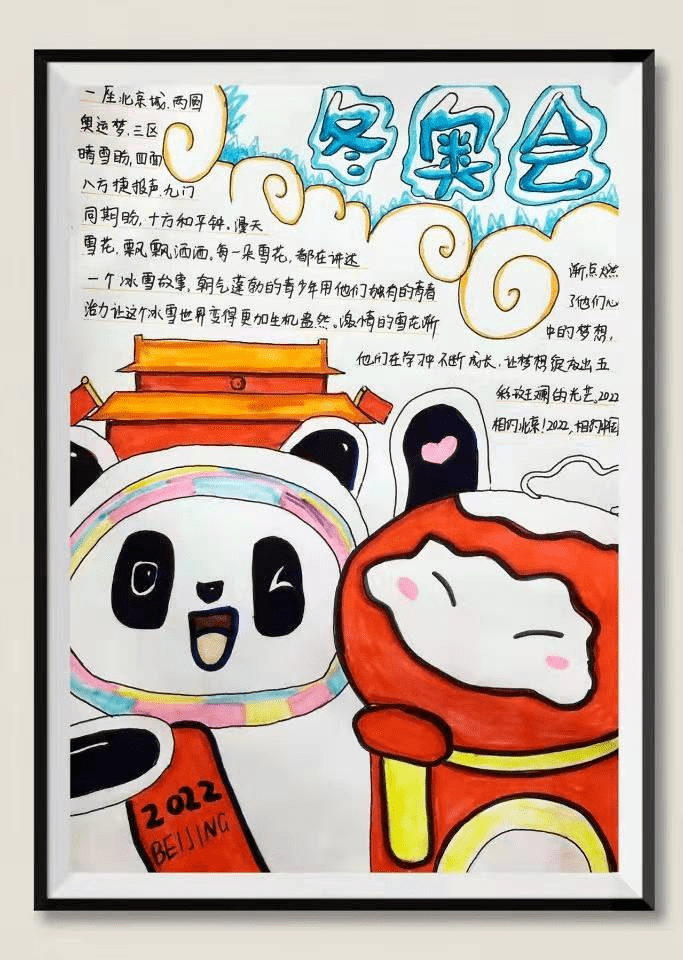 冬奥会
一座北京城，两圆
奥运梦，三区
晴雪盼，四面
八方捷报声，九门
同期盼，十方和平钟。漫天
雪花，飘飘洒洒。每一朵雪花，都在讲述
一个冰雪故事，朝气蓬勃的青少年用他们独有的青春
活力让这个冰雪世界变得更加生机盎然。激情的雪花渐
渐点燃
了他们心
中的梦想，
他们在学习中不断成长，让梦想绽放出五
彩斑斓的光芒。2022
相约北京！2022，相约中国
2022
BEIJING